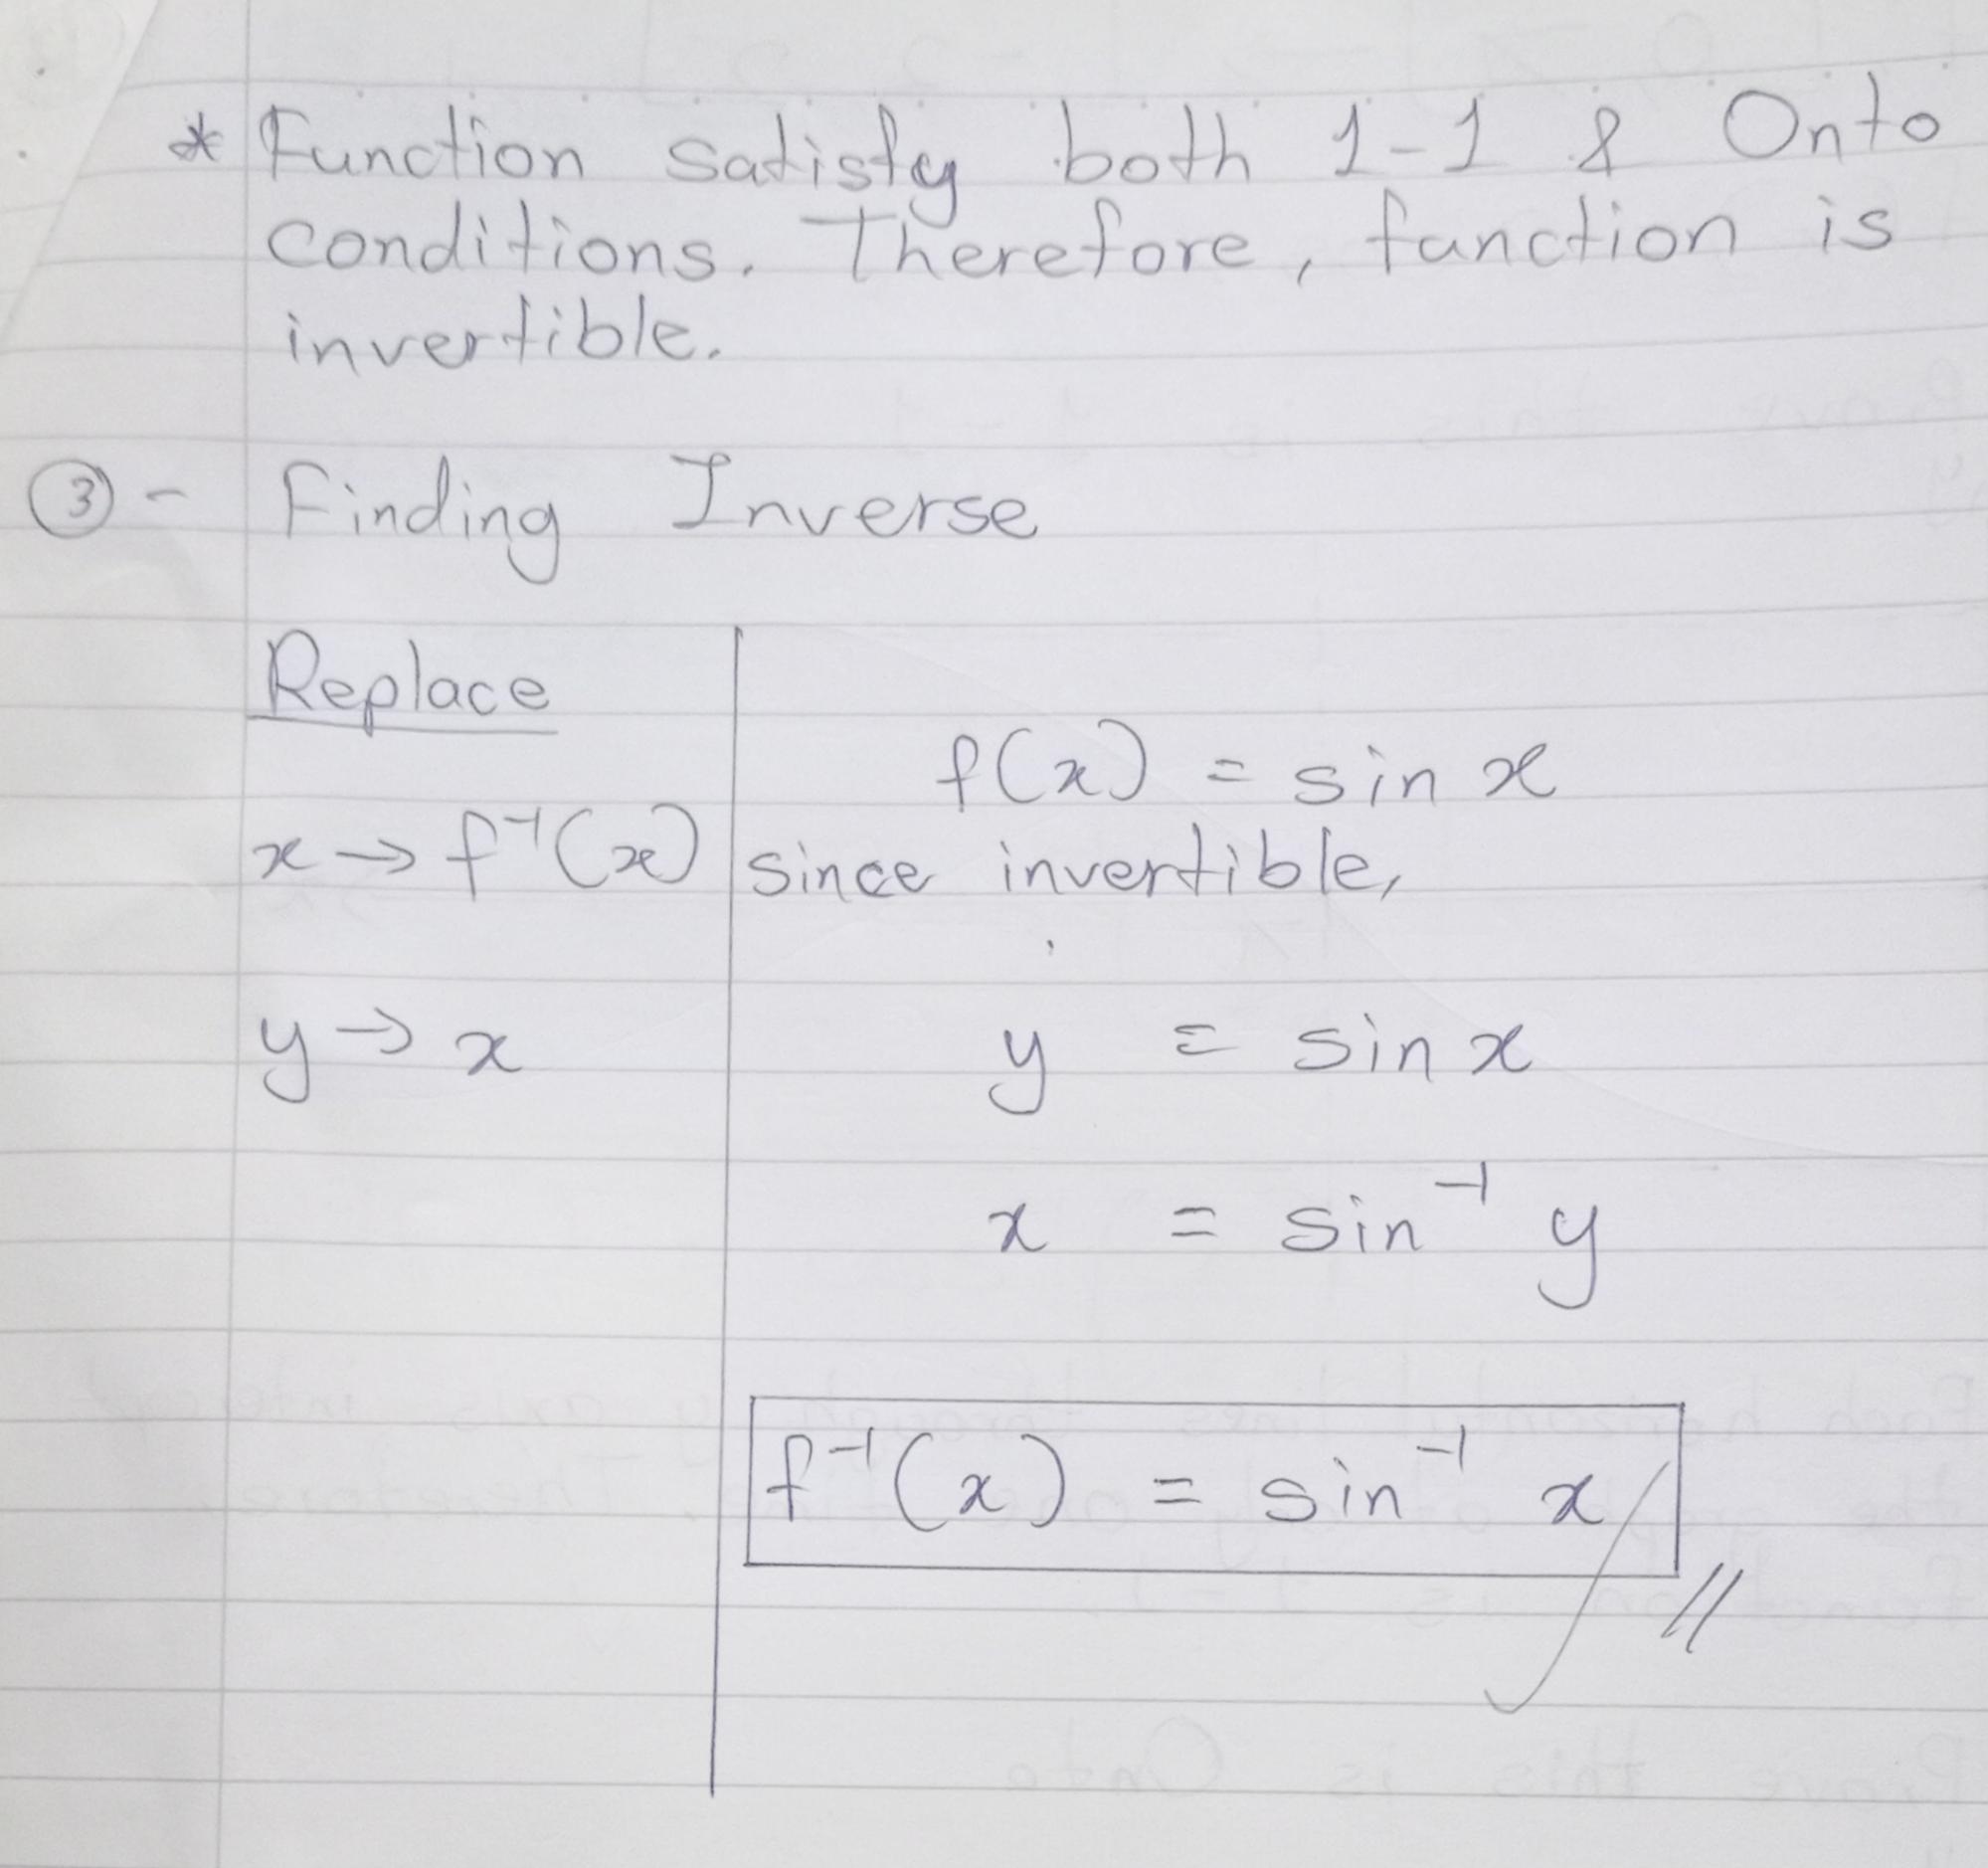 * Function satisfy both 1-1 & Onto
conditions. Therefore, function is
invertible.
③- Finding Inverse
Replace
f(x) = sin x
x → f⁻¹(x) since invertible,
y → x y = sin x
x = sin⁻¹ y
f⁻¹(x) = sin⁻¹ x